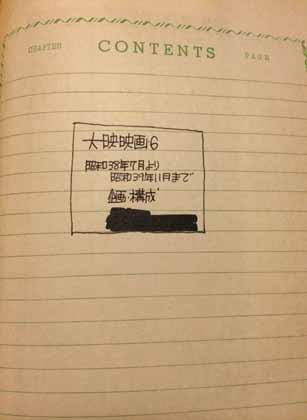 CHAPTER CONTENTS PAGE
大映映画6
昭和38年7月より
昭和39年11月まで
企画・構成